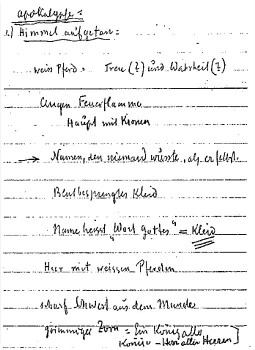 Apokalypse:
1.) Himmel aufgetan:
weiss Pferd. Treu (?) und Wahrheit (?)
Augen Feuerflamme
Haupt mit Kronen
→ Namen, den niemand wüsste, als er selbst.
Blutbesprengtes Kleid
Name heisst "Wort Gottes" = Kleid
Heer mit weissen Pferden
scharf Schwert aus dem Munde
grimmiger Zorn = Ein König aller
Könige - Herr aller Herren]